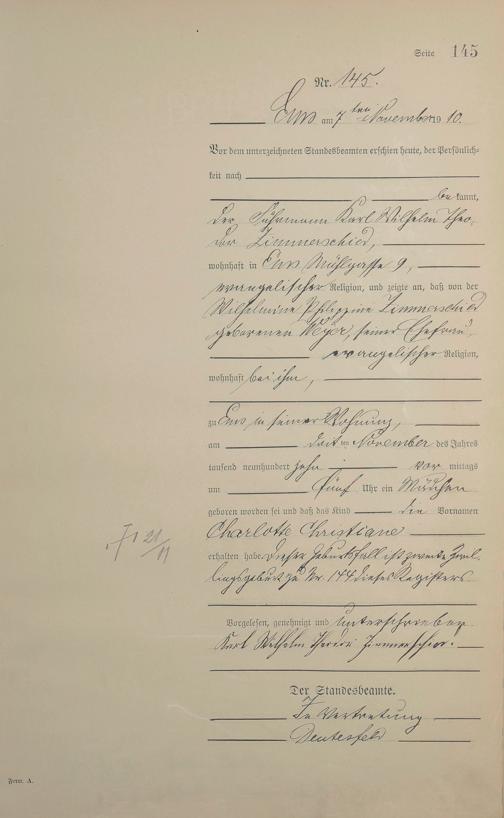 Seite 145
Nr. 145.
Ems am 7ten November 1910.
Vor dem unterzeichneten Standesbeamten erschien heute, der Persönlich-
keit nach
bekannt,
der Fuhrmann Karl Wilhelm Theo-
dor Zimmerschied,
wohnhaft in Ems, Mühlgasse 9,
evangelischer Religion, und zeigte an, daß von der
Wilhelmine Philippine Zimmerschied
geborenen Meyer, seiner Ehefrau,
evangelischer Religion,
wohnhaft bei ihm,
zu Ems in seiner Wohnung,
am ten November des Jahres
tausend neunhundert zehn vor mittags
um fünf Uhr ein Mädchen
geboren worden sei und daß das Kind die Vornamen
Charlotte Christiane
erhalten habe. Dieser Geburtsfall ist zweite Zwil-
lingsgeburt zu Nr. 144 dieses Registers.
Vorgelesen, genehmigt und unterschrieben
Karl Wilhelm Theodor Zimmerschied.
Der Standesbeamte.
In Vertretung
21/11
Form. A.